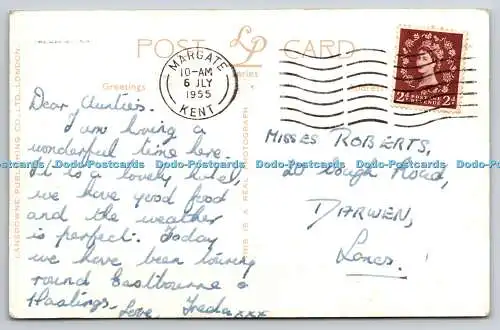 POST LP CARD
Series
Greetings
Address
MARGATE
10-AM
6 JLY
1955
KENT
2D POSTAGE REVENUE 2D
LANSDOWNE PUBLISHING CO., LTD., LONDON.
THIS IS A REAL PHOTOGRAPH
Dear Aunties.
I am having a
wonderful time here.
It is a lovely hotel,
we have good food
and the weather
is perfect. Today
we have been touring
round Eastbourne &
Hastings. Love, Freda xxx
MISSES ROBERTS,
Road,
DARWEN,
Lancs.
Do-Postcards Do-Postcards Do-Postcards Do-Postcards Do-Postcards Do-Postcards